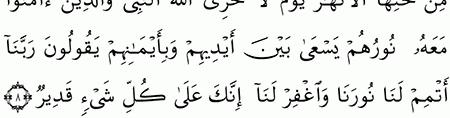 مِن تَحْتِهَا ٱلْأَنْهَٰرُ يَوْمَ لَا يُخْزِى ٱللَّهُ ٱلنَّبِىَّ وَٱلَّذِينَ ءَامَنُوا۟
مَعَهُۥ نُورُهُمْ يَسْعَىٰ بَيْنَ أَيْدِيهِمْ وَبِأَيْمَٰنِهِمْ يَقُولُونَ رَبَّنَآ
أَتْمِمْ لَنَا نُورَنَا وَٱغْفِرْ لَنَآ إِنَّكَ عَلَىٰ كُلِّ شَىْءٍ قَدِيرٌ ﴿٨﴾